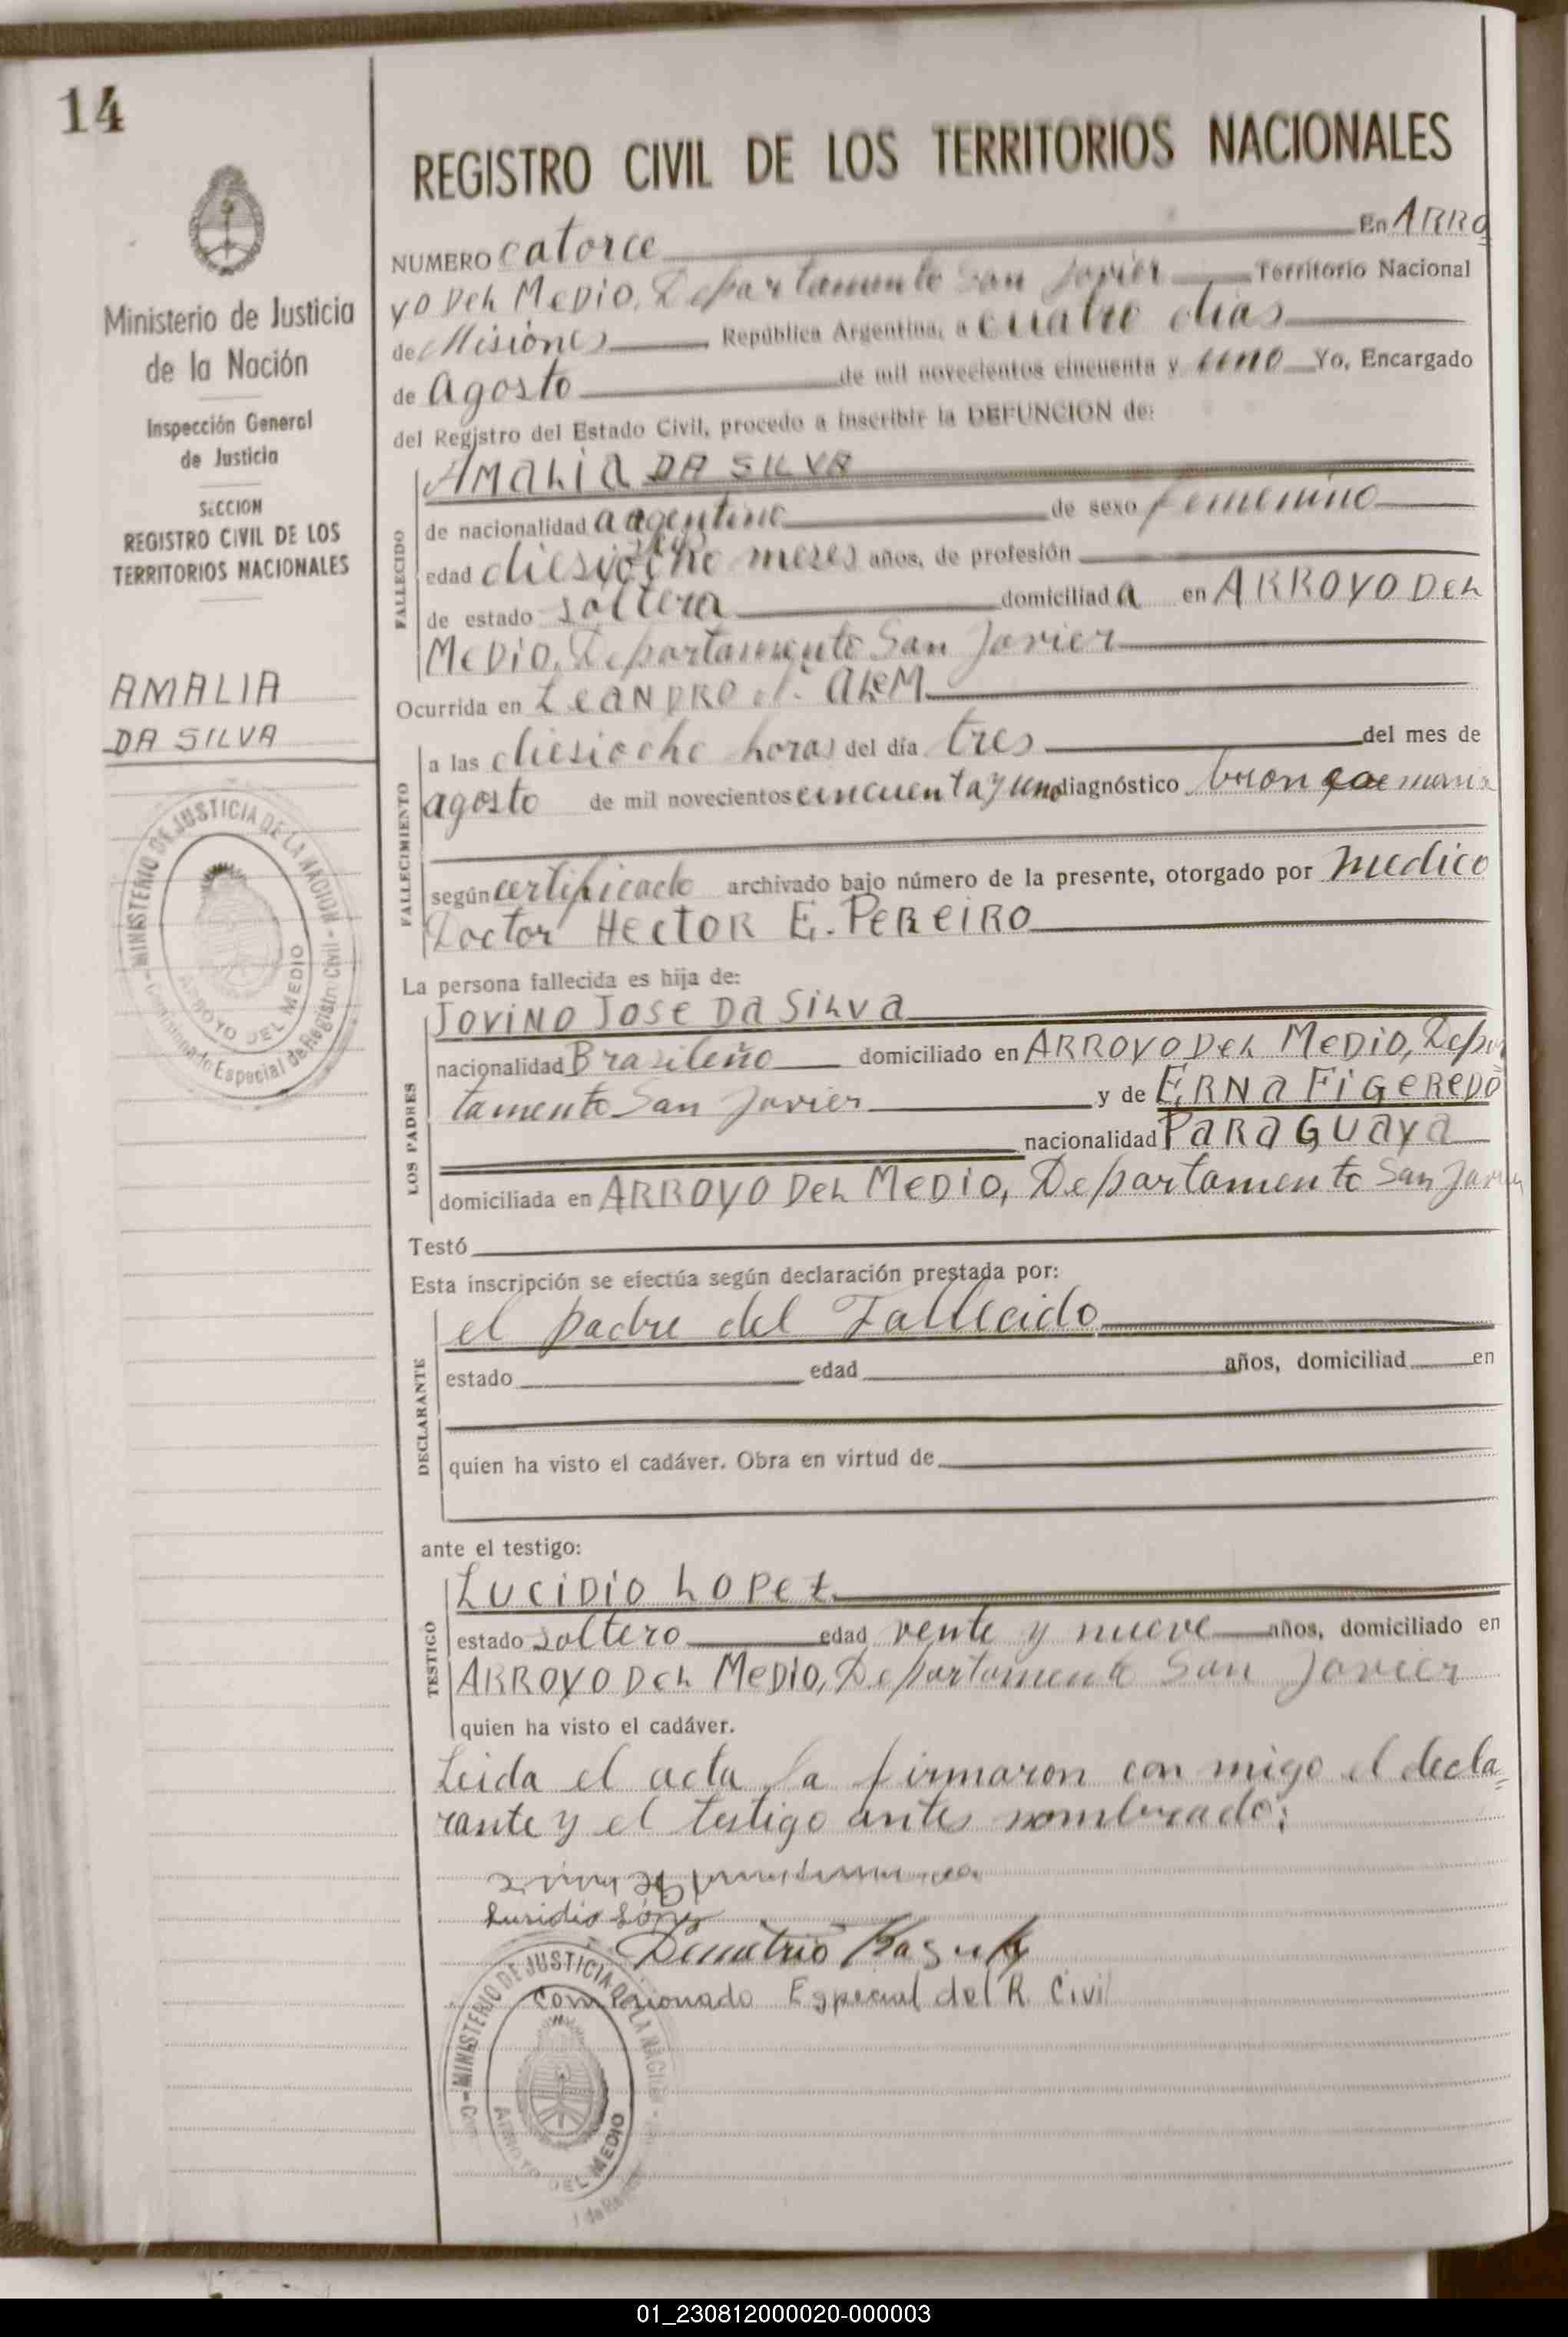 14
Ministerio de Justicia
de la Nación
Inspección General
de Justicia
SECCION
REGISTRO CIVIL DE LOS
TERRITORIOS NACIONALES
AMALIA
DA SILVA
MINISTERIO DE JUSTICIA DE LA NACION
Comisionado Especial de Registro Civil
ARROYO DEL MEDIO
REGISTRO CIVIL DE LOS TERRITORIOS NACIONALES
NUMERO catorce En ARRO
YO DEL MEDIO, Departamento San Javier Territorio Nacional
de Misiones República Argentina, a cuatro dias
de agosto de mil novecientos cincuenta y uno Yo, Encargado
del Registro del Estado Civil, procedo a inscribir la DEFUNCION de:
FALLECIDO
AMALIA DA SILVA
de nacionalidad argentina de sexo femenino
edad meses años, de profesión
de estado soltera domiciliada en ARROYO DEL
MEDIO, Departamento San Javier
Ocurrida en LEANDRO N. ALEM
FALLECIMIENTO
a las diesiocho horas del día tres del mes de
agosto de mil novecientos cincuenta y uno diagnóstico
según certificado archivado bajo número de la presente, otorgado por medico
Doctor HECTOR E. PEREIRO
La persona fallecida es hija de:
LOS PADRES
JOVINO JOSE DA SILVA
nacionalidad Brasileño domiciliado en ARROYO DEL MEDIO, Depar
tamento San Javier y de ERNA FIGEREDO
nacionalidad PARAGUAYA
domiciliada en ARROYO DEL MEDIO, Departamento San Javier
Testó
Esta inscripción se efectúa según declaración prestada por:
DECLARANTE
el padre del Fallecido
estado edad años, domiciliad en
quien ha visto el cadáver. Obra en virtud de
ante el testigo:
TESTIGO
LUCIDIO LOPEZ
estado soltero edad vente y nueve años, domiciliado en
ARROYO DEL MEDIO, Departamento San Javier
quien ha visto el cadáver.
Leida el acta la firmaron con migo el decla=
rante y el testigo antes nombrado:
Lusidio López
Demetrio
Comisionado Especial del R. Civil
MINISTERIO DE JUSTICIA DE LA NACION
ARROYO DEL MEDIO
01_230812000020-000003